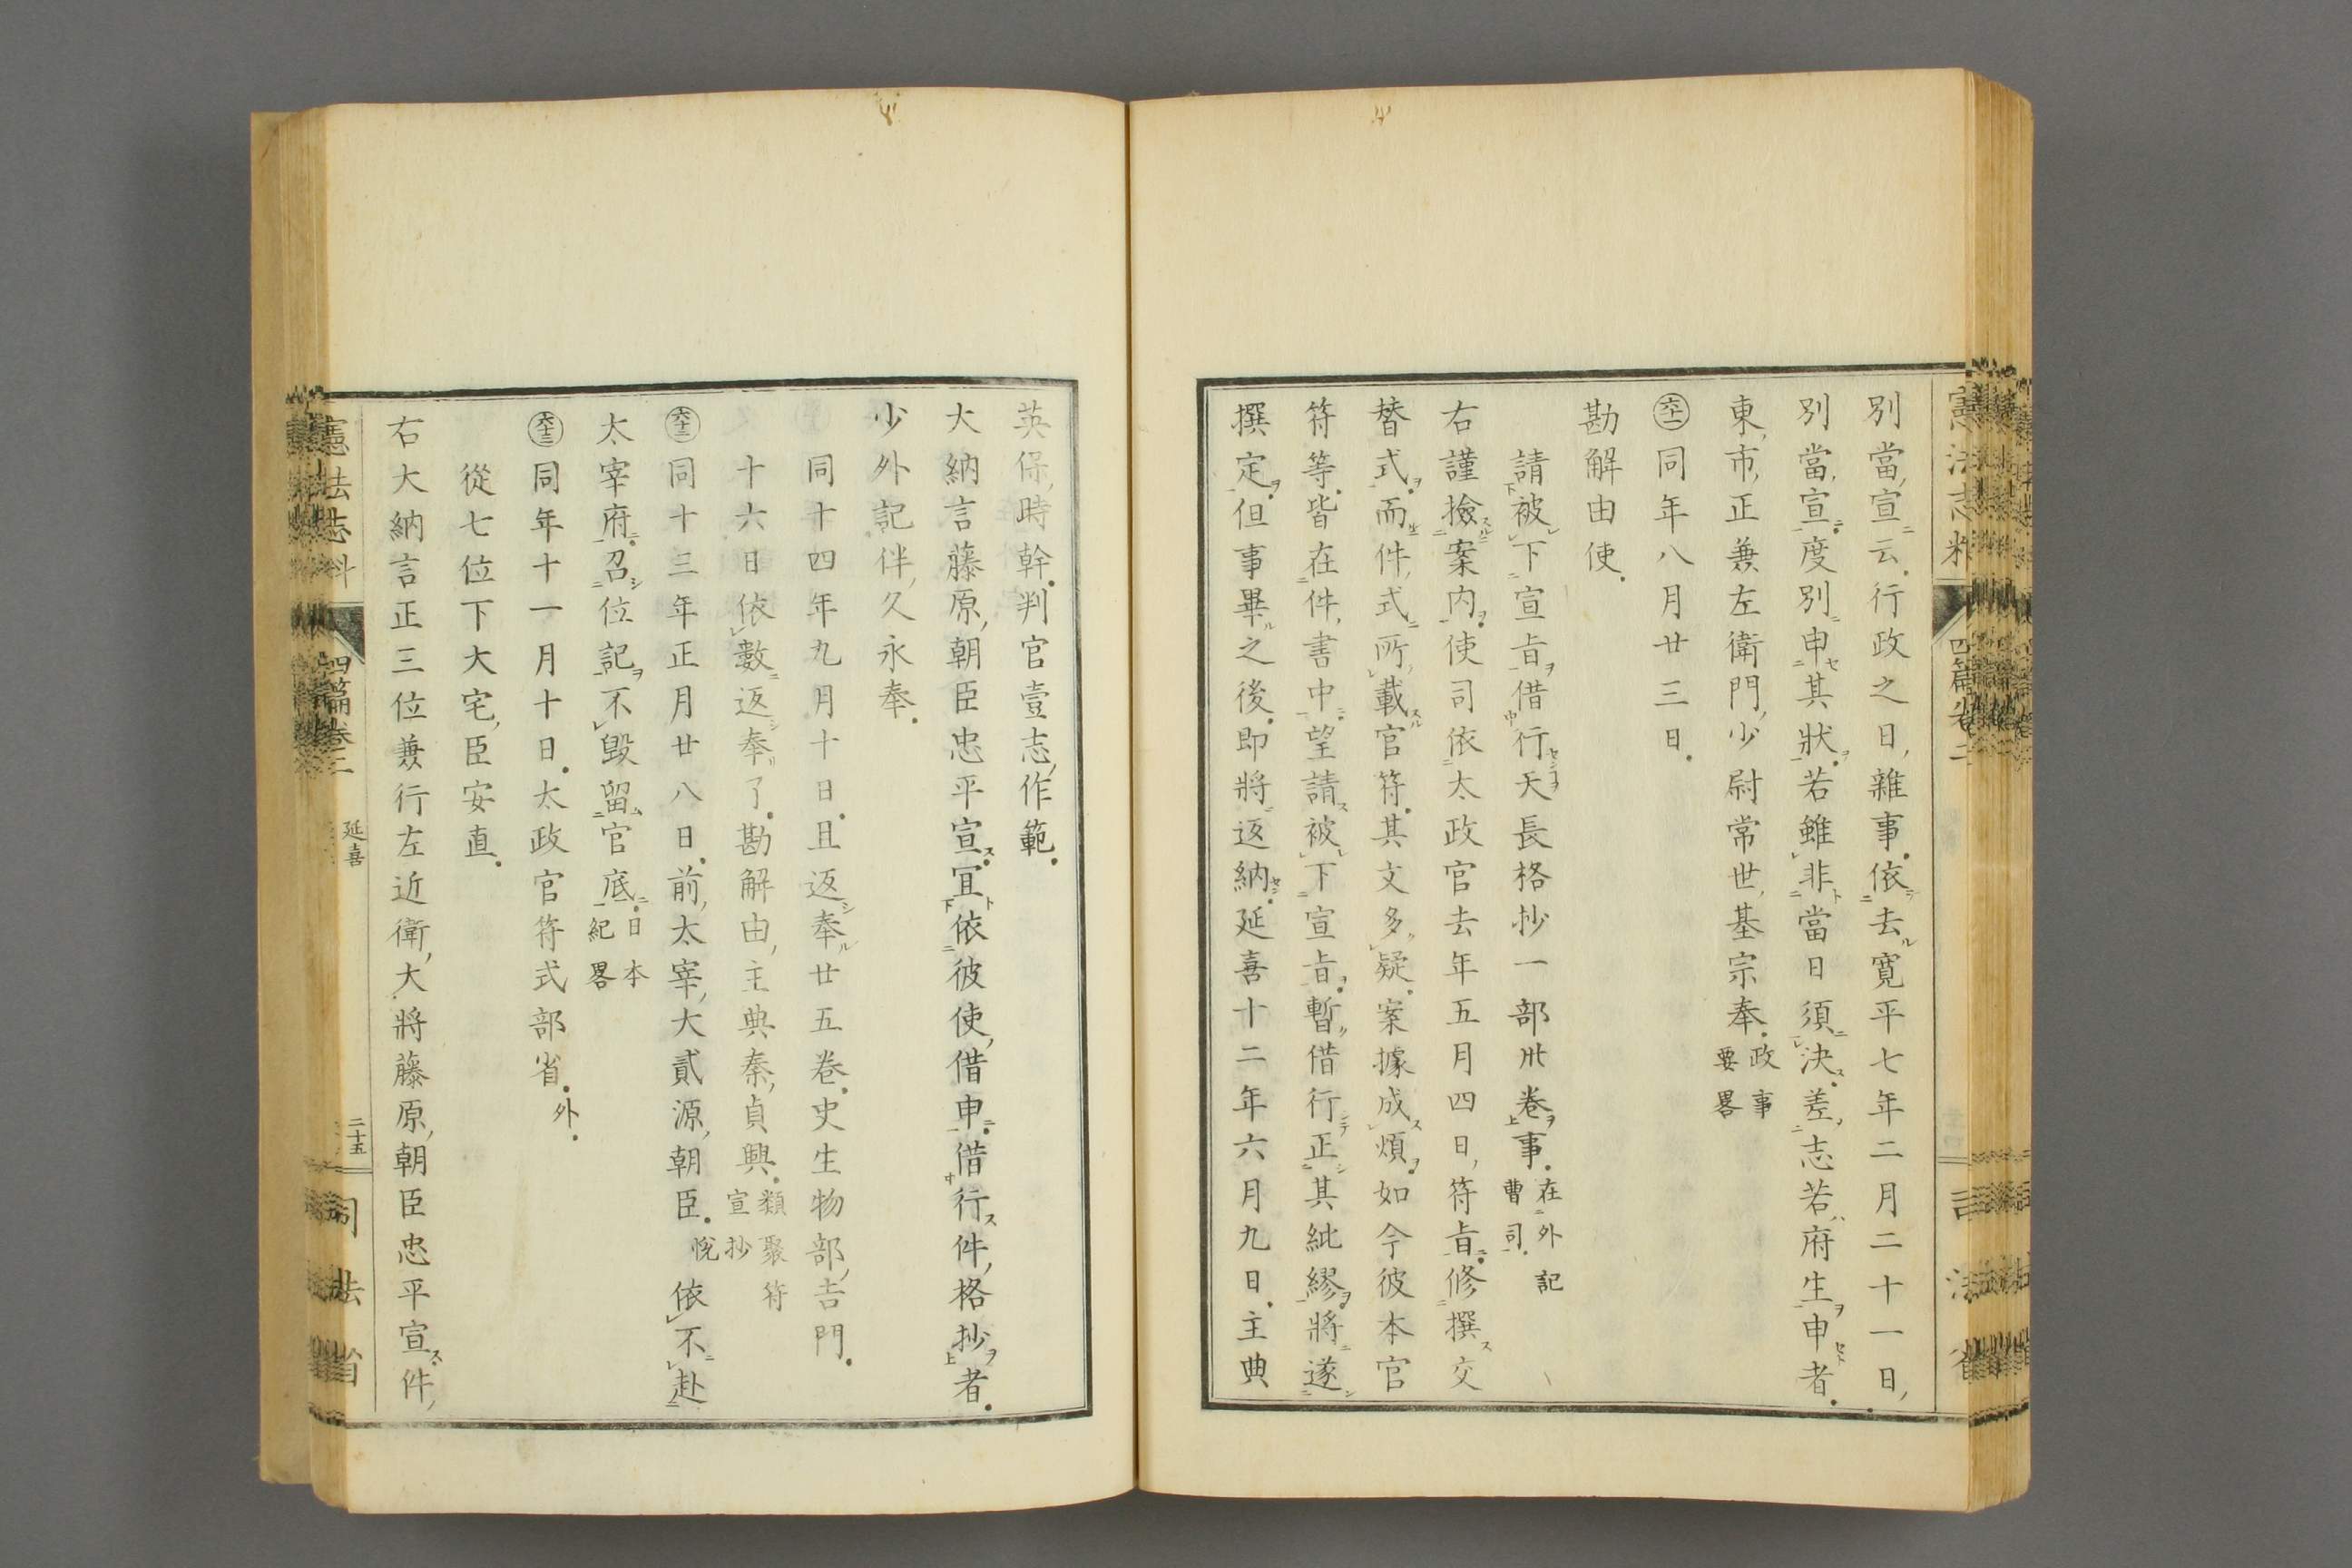 別當宣云行政之日雜事依去寛平七年二月二十一日
別當宣度別申其狀若雖非當日須決差志若府生申者
東市正兼左衛門少尉常世基宗奉政事要畧
六十一同年八月廿三日
勘解由使
請被下宣旨借行天長格抄一部卅卷事在外記曹司
右謹撿案内使司依太政官去年五月四日符旨修撰交
替式而件式所載官符其文多疑案據成煩如今彼本官
符等皆在件書中望請被下宣旨暫借行正其紕繆將遂
撰定但事畢之後即將返納延喜十二年六月九日主典
英保時幹判官壹志作範
大納言藤原朝臣忠平宣宜依彼使借申借行件格抄者
少外記伴久永奉
同十四年九月十日且返奉廿五卷史生物部吉門
十六日依數返奉了勘解由主典秦貞興類聚符宣抄
六十二同十三年正月廿八日前太宰大貳源朝臣悅依不赴
太宰府召位記不毀留官底日本紀畧
六十三同年十一月十日太政官符式部省外
從七位下大宅臣安直
右大納言正三位兼行左近衛大將藤原朝臣忠平宣件
憲法志料
四篇卷二
延喜
二十五
司法省